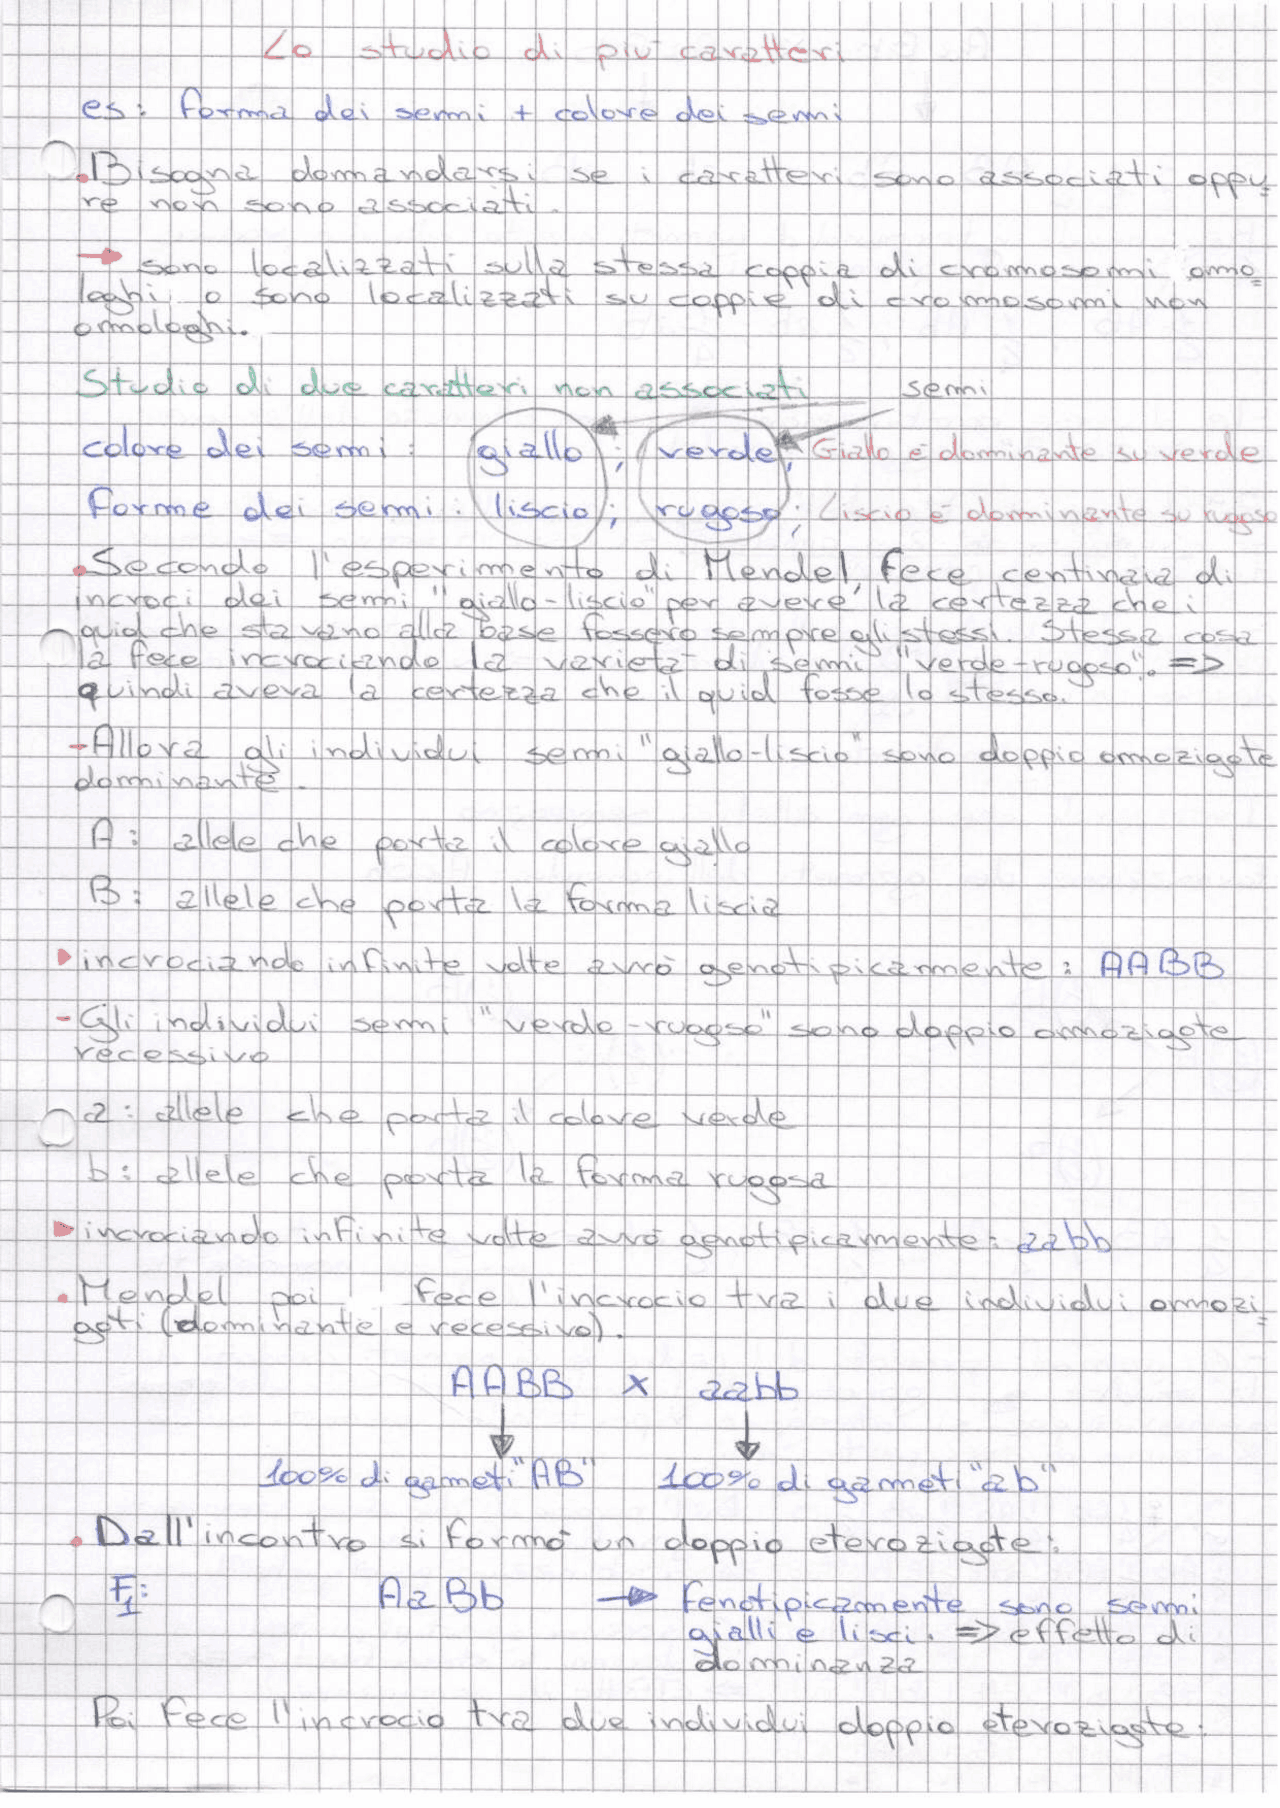 Lo studio di più caratteri
es: forma dei semi + colore dei semi
• Bisogna domandarsi se i caratteri sono associati oppu
re non sono associati.
→ sono localizzati sulla stessa coppia di cromosomi omo
loghi o sono localizzati su coppie di cromosomi non
omologhi.
Studio di due caratteri non associati semi
colore dei semi: giallo; verde; Giallo è dominante su verde
forme dei semi: liscio; rugoso; Liscio è dominante su rugoso
• Secondo l'esperimento di Mendel, fece centinaia di
incroci dei semi "giallo-liscio" per avere la certezza che i
quid che stavano alla base fossero sempre gli stessi. Stessa cosa
la fece incrociando la varietà di semi "verde-rugoso". =>
quindi aveva la certezza che il quid fosse lo stesso.
- Allora gli individui semi "giallo-liscio" sono doppio omozigote
dominante.
A: allele che porta il colore giallo
B: allele che porta la forma liscia
▸ incrociando infinite volte avrò genotipicamente: AABB
- Gli individui semi "verde-rugoso" sono doppio omozigote
recessivo
a: allele che porta il colore verde
b: allele che porta la forma rugosa
▸ incrociando infinite volte avrò genotipicamente: aabb
• Mendel poi fece l'incrocio tra i due individui omozi
goti (dominante e recessivo).
AABB x aabb
100% di gameti "AB" 100% di gameti "ab"
• Dall'incontro si formò un doppio eterozigote:
F1: AaBb → fenotipicamente sono semi
gialli e lisci. => effetto di
dominanza
Poi fece l'incrocio tra due individui doppio eterozigote: